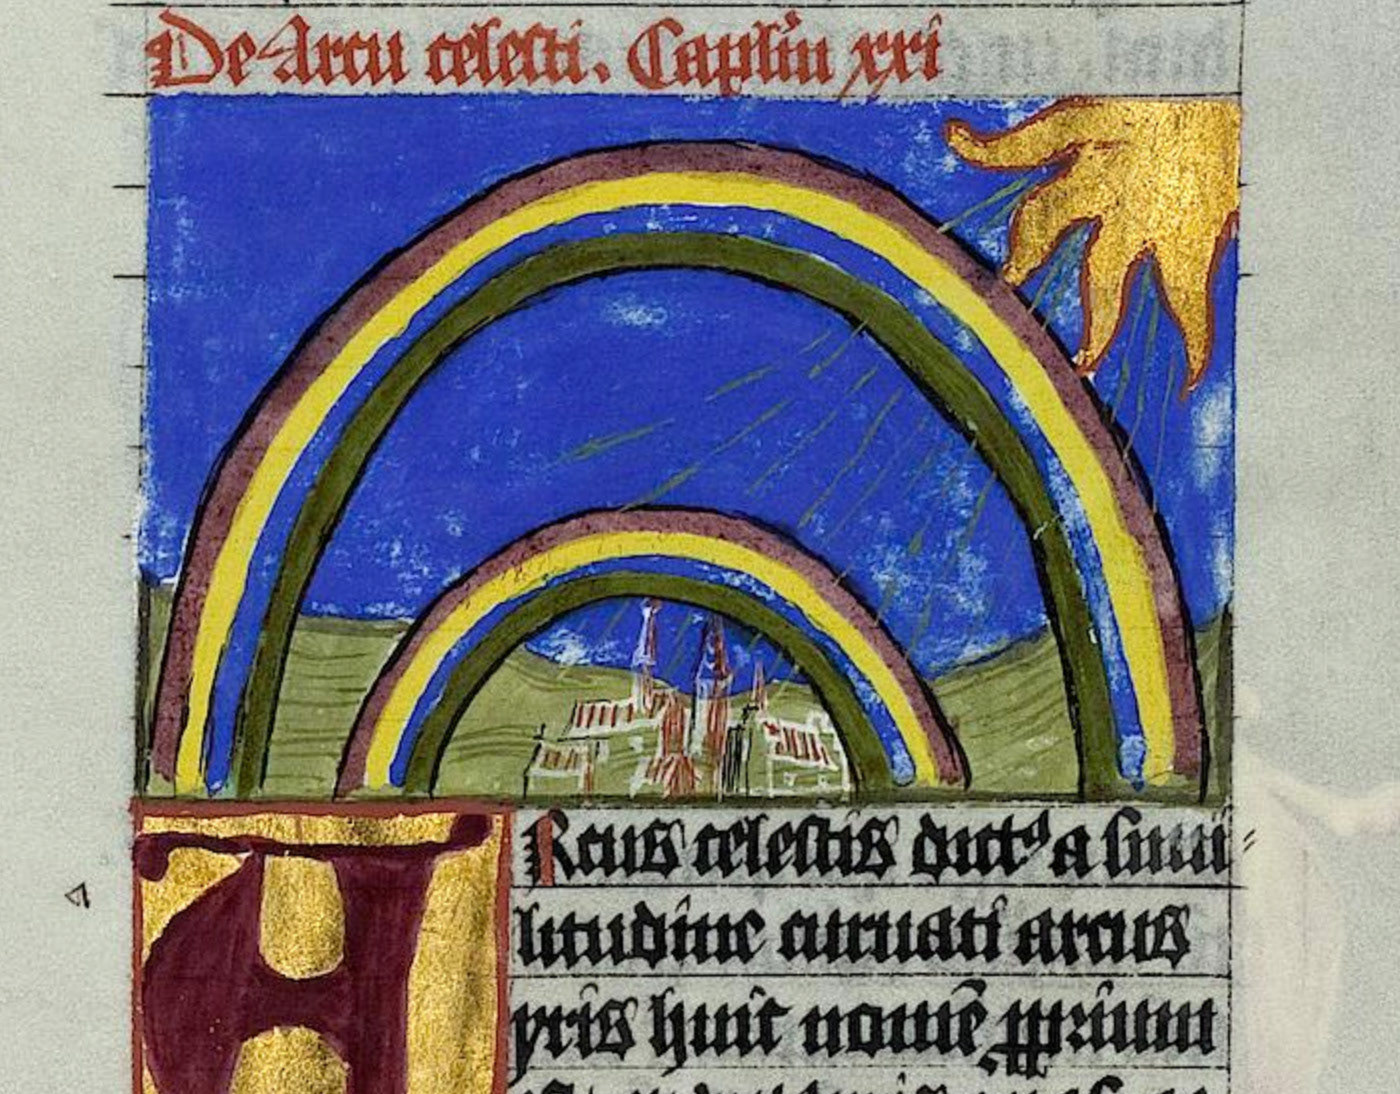 De Arcu celesti. Caplm̄ xxi
ARcus celestis dict⁹ a simi
litudine curuati arcus
yris huic nomē ꝓprium